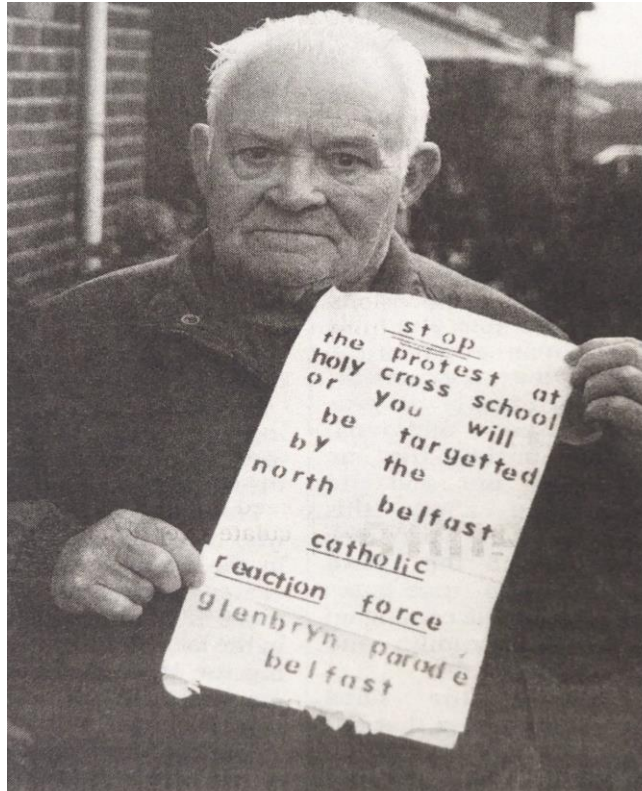 stop
the protest at
holy cross school
or you will
be targetted
by the
north belfast
catholic
reaction force
glenbryn parade
belfast